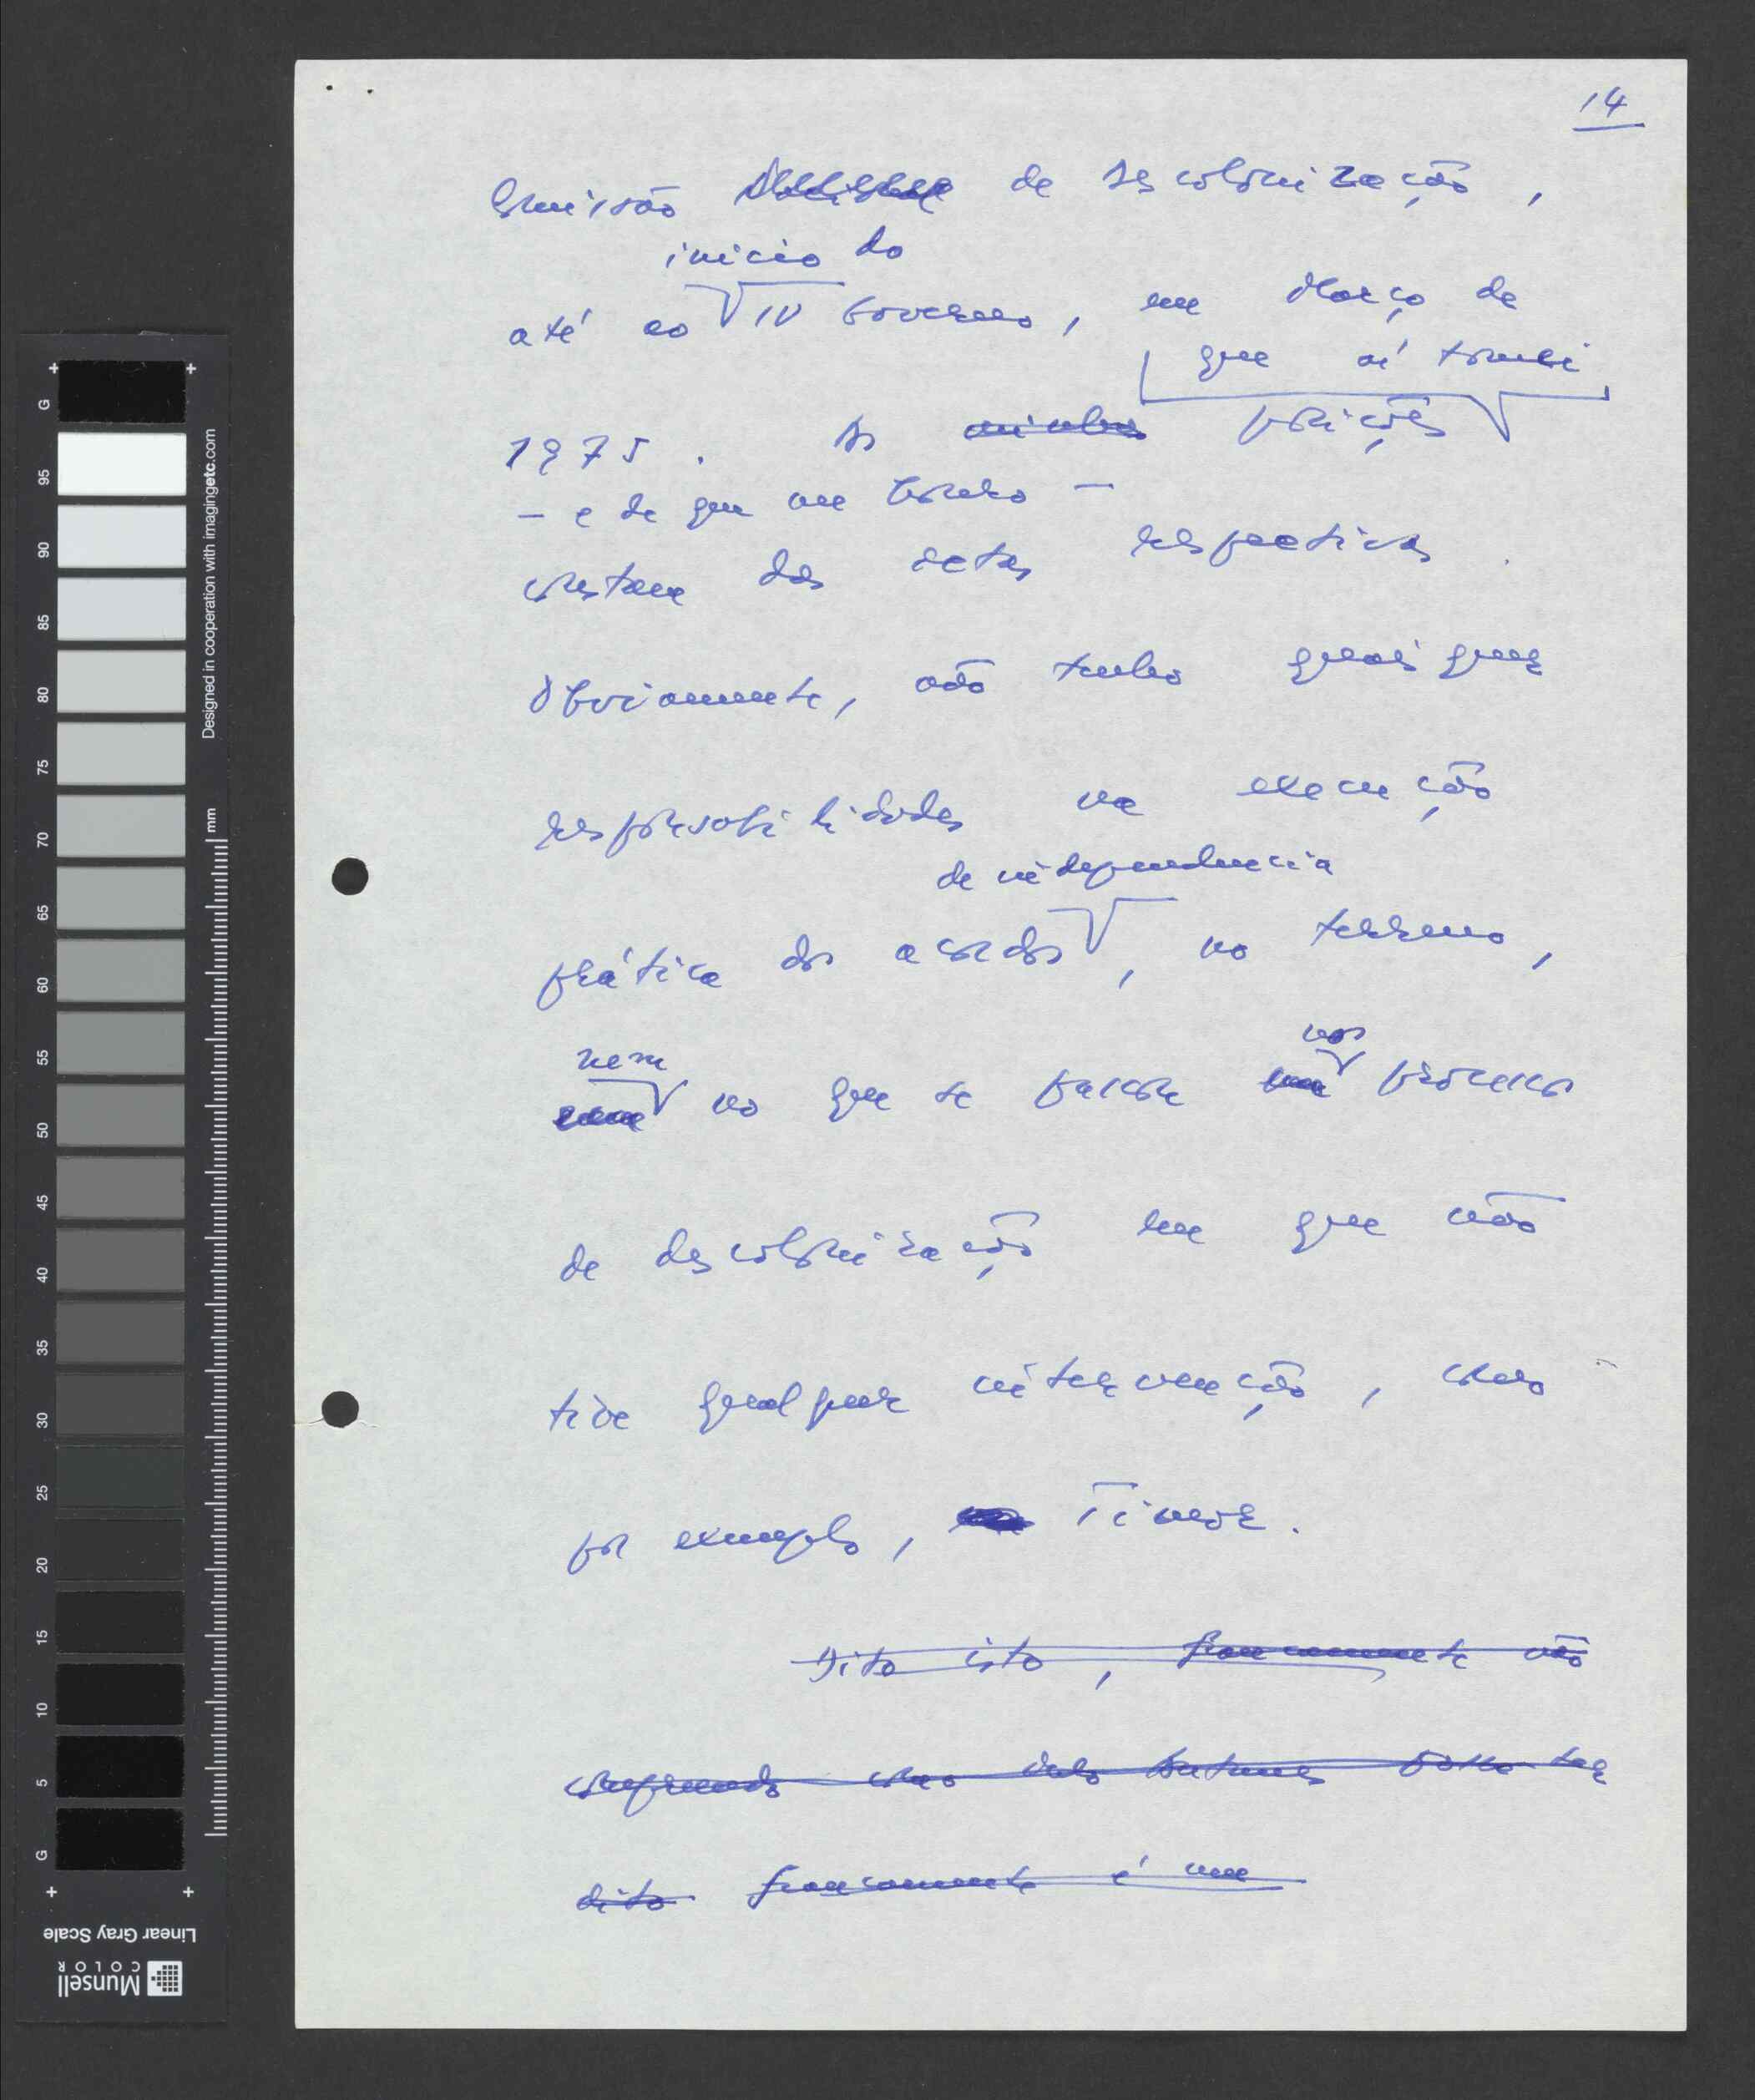 14
Comissão de descolonização,
início do
até ao IV Governo, em Março de
que aí tomei
1975. As minhas posições
- e de que me honro -
constam das actas respectivas.
Obviamente, não tenho quaisquer
responsabilidades na execução
de independência
prática dos acordos, no terreno,
nem nos
no que se passou processos
de descolonização em que não
tive qualquer intervenção, como
por exemplo, Timor.
Dito isto, francamente não
compreendo como Antunes possa ter
dito francamente é um
G
95
90
85
80
75
70
65
60
55
50
45
40
35
30
25
20
15
10
5
G
mm
Designed in cooperation with imagingetc.com
Linear Gray Scale
Munsell
COLOR